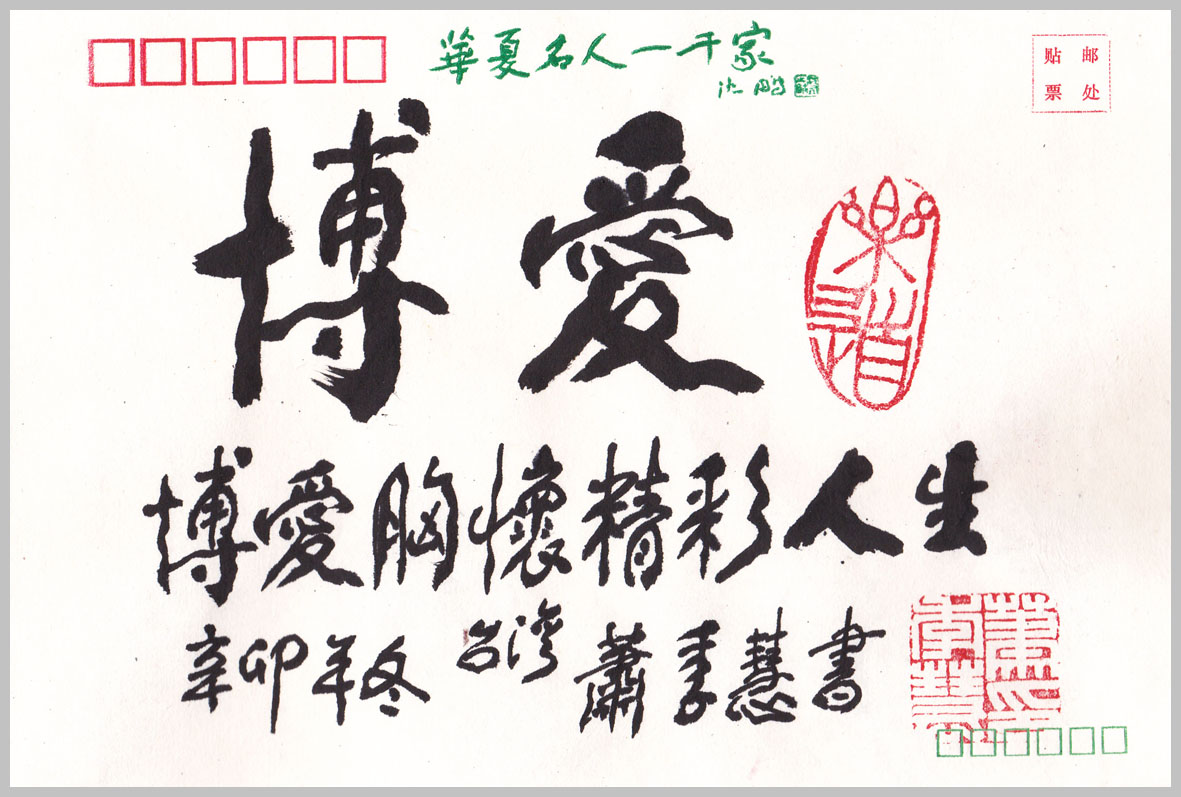 華夏名人一千家
沈鹏
贴邮
票处
博愛
博愛胸懷精彩人生
辛卯年冬 台湾 蕭季慧書